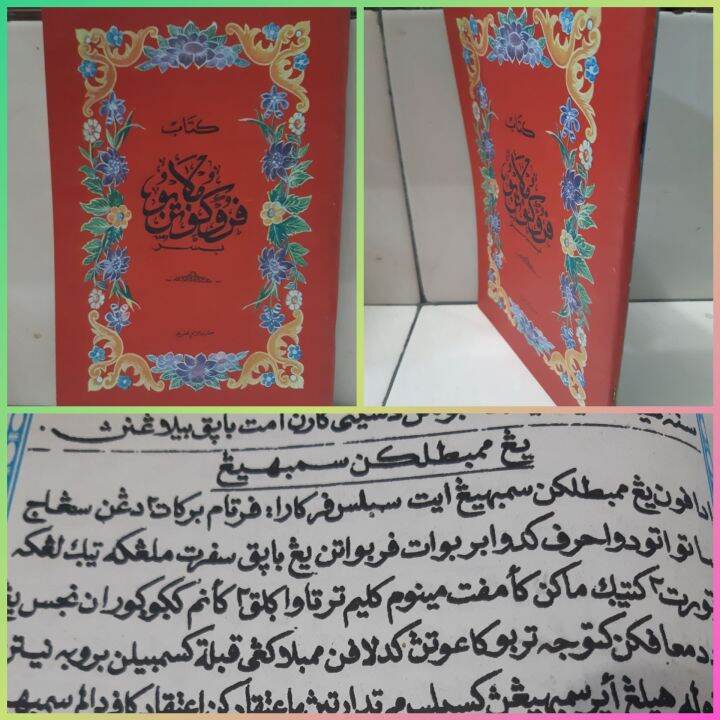 كتاب
فروكونن ملايو
بسر
دسيني كارن امت باڽق بيلاڠنڽ.
يڠ ممبطلكن سمبهيڠ
ادافون يڠ ممبطلكن سمبهيڠ ايت سبلس فركارا؛ فرتام بركات٢ دڠن سڠاج
ساتو اتو دوا حرف كدوا بربوات فربواتن يڠ باڽق سفرت ملڠكه تيݢ لڠكه
تورت٢ كتيݢ ماكن كأمفت مينوم كليم ترتاوا كأنم نجس يڠ
د معافكن كتوجه تربوكا عورتڽ كدلافن ممبلاكڠي قبلة كسمبيلن بروبه نيتڽ
فوله هيلڠ سمبهيڠڽ كسبلس مرتد اعتقاد كافر دالم سمبهيڠ